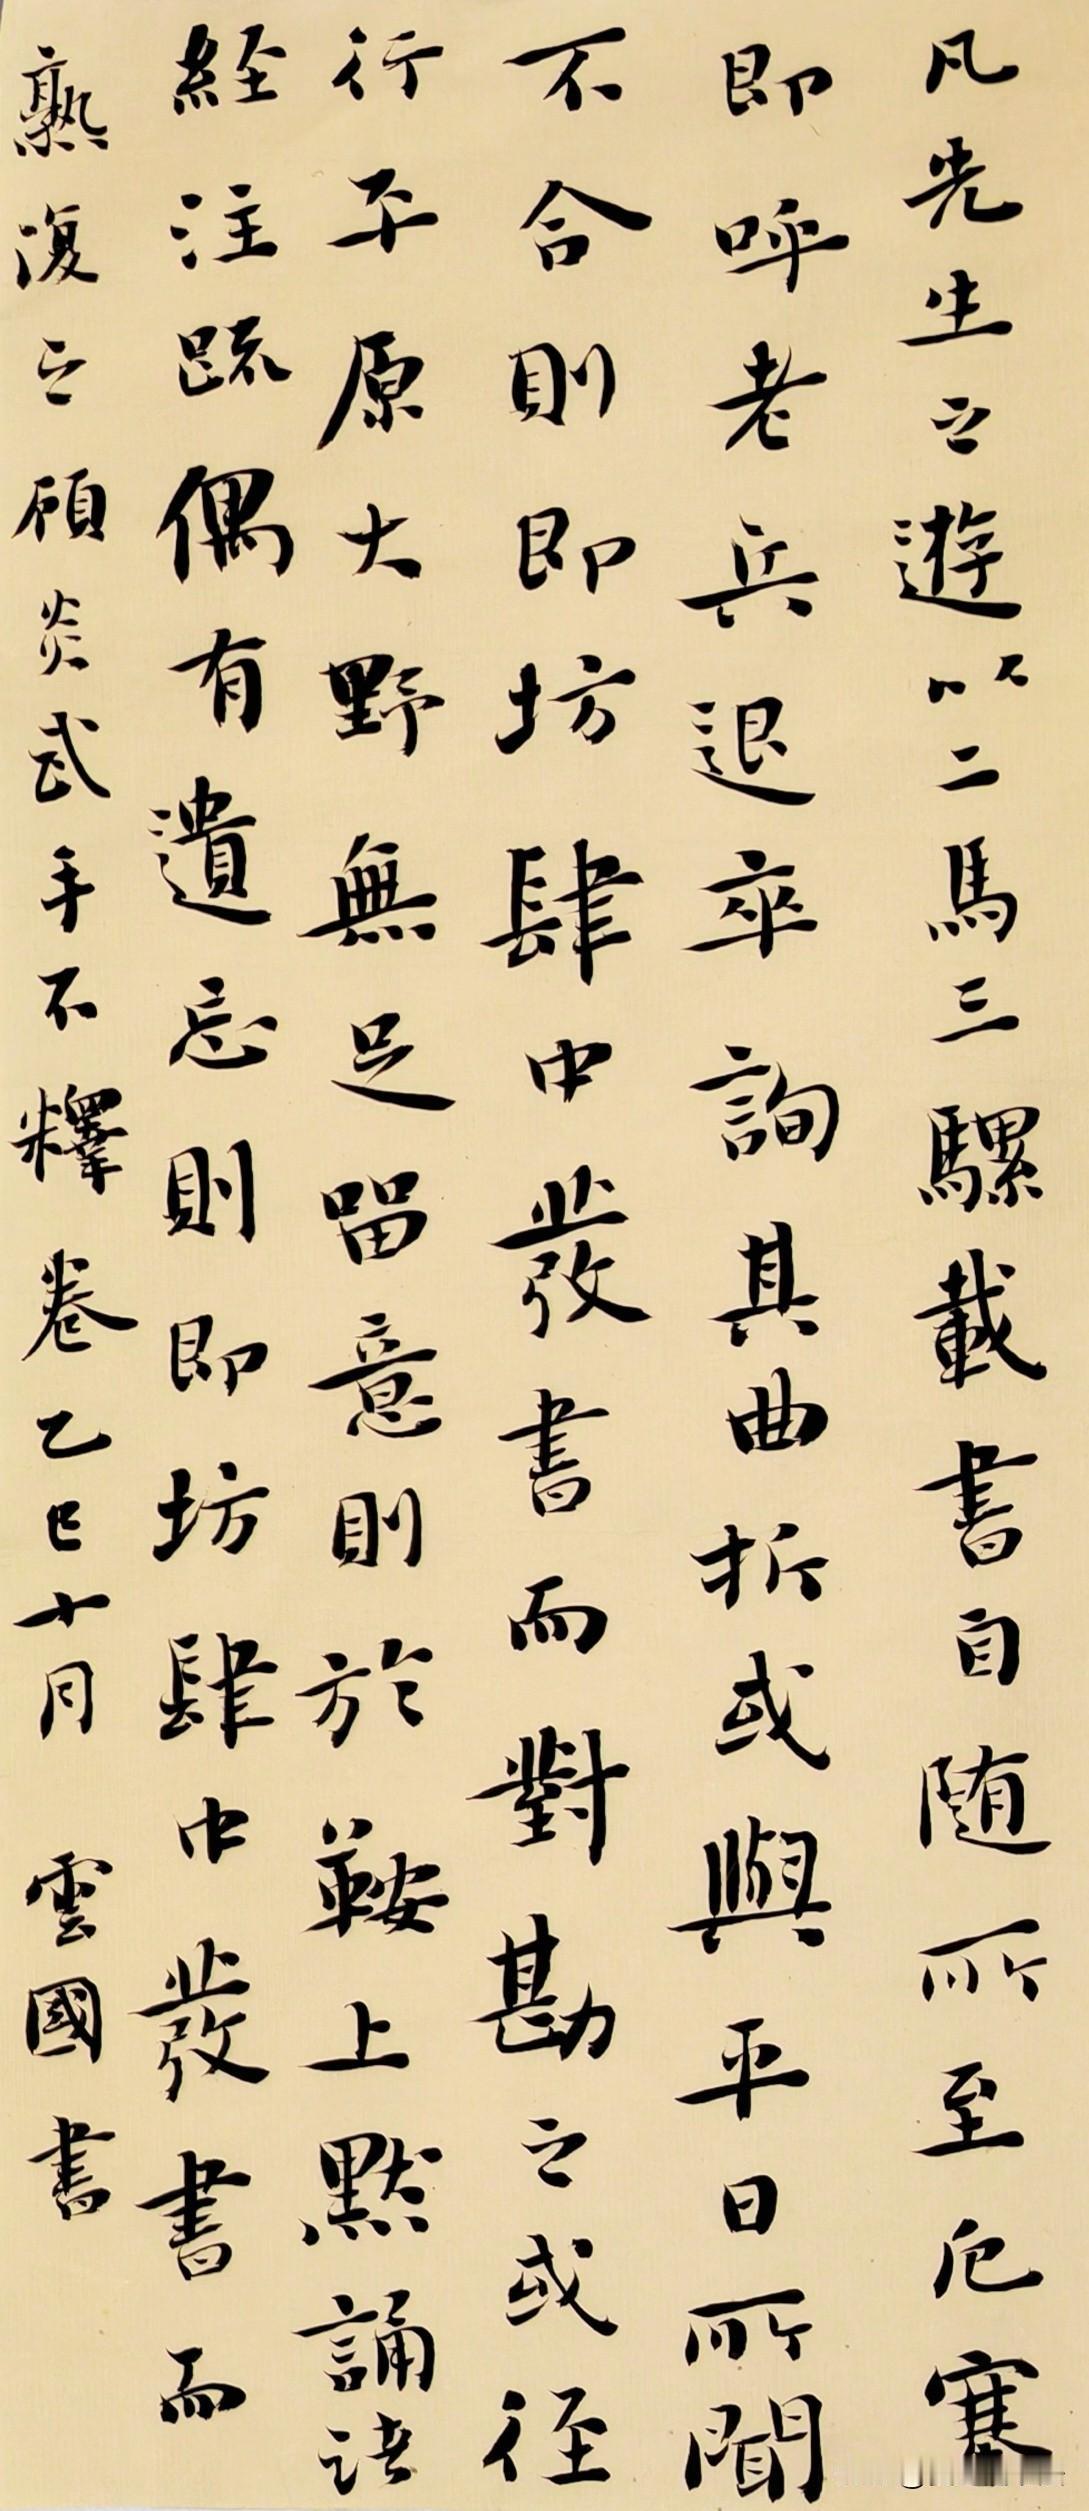 凡先生之遊以二馬三騾載書自随所至厄塞
即呼老兵退卒詢其曲折或與平日所聞
不合則即坊肆中發書而對勘之或徑
行平原大野無足留意則於鞍上默誦諸
經注疏偶有遺忘則即坊肆中發書而
熟復之顧炎武手不釋卷乙巳十月雲國書